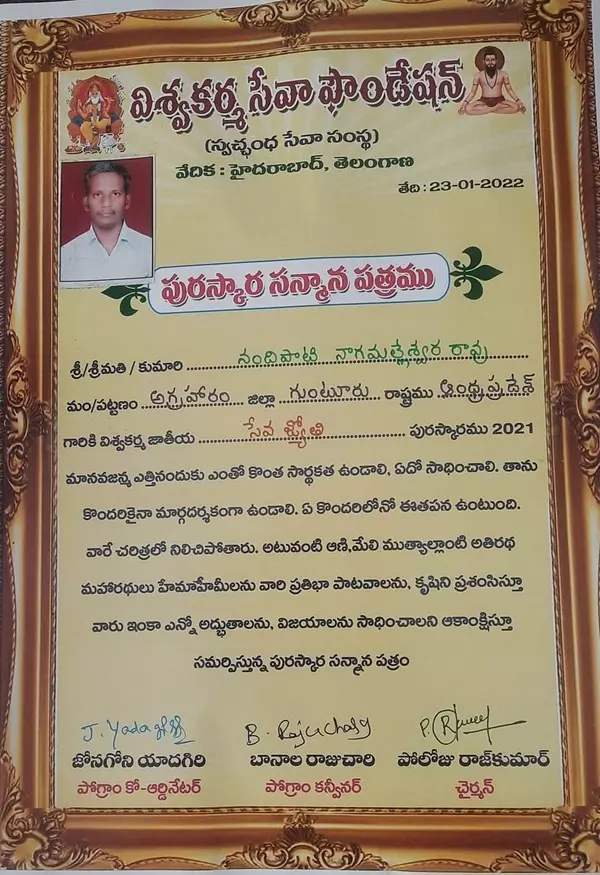 విశ్వకర్మ సేవా ఫౌండేషన్
(స్వచ్ఛంధ సేవా సంస్థ)
వేదిక : హైదరాబాద్, తెలంగాణ
తేది : 23-01-2022
పురస్కార సన్మాన పత్రము
శ్రీ/శ్రీమతి / కుమారి నందిపాటి నాగమల్లేశ్వర రావు
మం/పట్టణం అగ్రహారం జిల్లా గుంటూరు రాష్ట్రము ఆంధ్రప్రదేశ్
గారికి విశ్వకర్మ జాతీయ సేవ జ్యోతి పురస్కారము 2021
మానవజన్మ ఎత్తినందుకు ఎంతో కొంత సార్థకత ఉండాలి, ఏదో సాధించాలి. తాను
కొందరికైనా మార్గదర్శకంగా ఉండాలి. ఏ కొందరిలోనో ఈతపన ఉంటుంది.
వారే చరిత్రలో నిలిచిపోతారు. అటువంటి ఆణి,మేలి ముత్యాల్లాంటి అతిరథ
మహారథులు హేమాహేమీలను వారి ప్రతిభా పాటవాలను, కృషిని ప్రశంసిస్తూ
వారు ఇంకా ఎన్నో అద్భుతాలను, విజయాలను సాధించాలని ఆకాంక్షిస్తూ
సమర్పిస్తున్న పురస్కార సన్మాన పత్రం
J. Yadagiri B. Rajuchary
జోనగోని యాదగిరి బానాల రాజుచారి పోలోజు రాజ్‌కుమార్
పోగ్రాం కో-ఆర్డినేటర్ పోగ్రాం కన్వీనర్ చైర్మన్